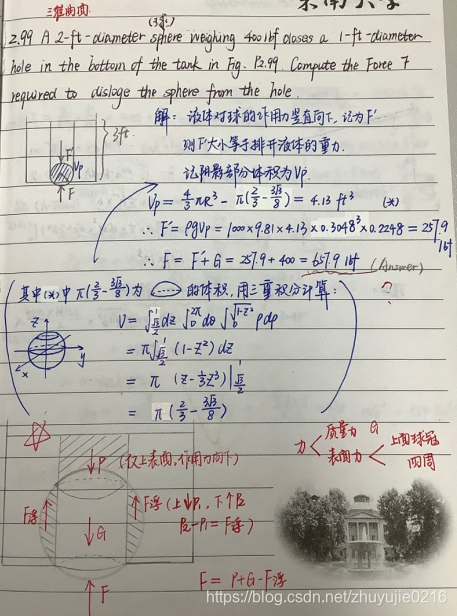 三维曲面
东南大学
(球)
2.99 A 2-ft-diameter sphere weighing 400 lbf closes a 1-ft-diameter
hole in the bottom of the tank in Fig. P2.99. Compute the Force F
required to dislodge the sphere from the hole.
3ft.
F'
Vp
F
解: 液体对球的作用力竖直向下, 记为F'
则F'大小等于排开液体的重力.
记阴影部分体积为Vp.
Vp = 4/3 πR³ - π(2/3 - 3√3/8) = 4.13 ft³ (*)
∴ F' = ρgVp = 1000×9.81×4.13×0.3048³×0.2248 = 257.9 lbf
∴ F = F'+G = 257.9 + 400 = 657.9 lbf (Answer)
?
其中(*)中 π(2/3 - 3√3/8) 为 的体积, 用三重积分计算:
V = ∫_{√3/2}^{1} dz ∫_0^{2π} dθ ∫_0^{√1-z²} ρdρ
= π∫_{√3/2}^{1} (1-z²) dz
= π (z - 1/3 z³) |_{√3/2}^{1}
= π (2/3 - 3√3/8)
z
y
x
P (仅上表面, 作用力向下)
F浮
F浮 (上↓P₁, 下↑P₂
P₂-P₁ = F浮)
G
F
力 < 质量力 G
表面力 < 上面球冠
四周
F = P+G-F浮
https://blog.csdn.net/zhuyujie0216